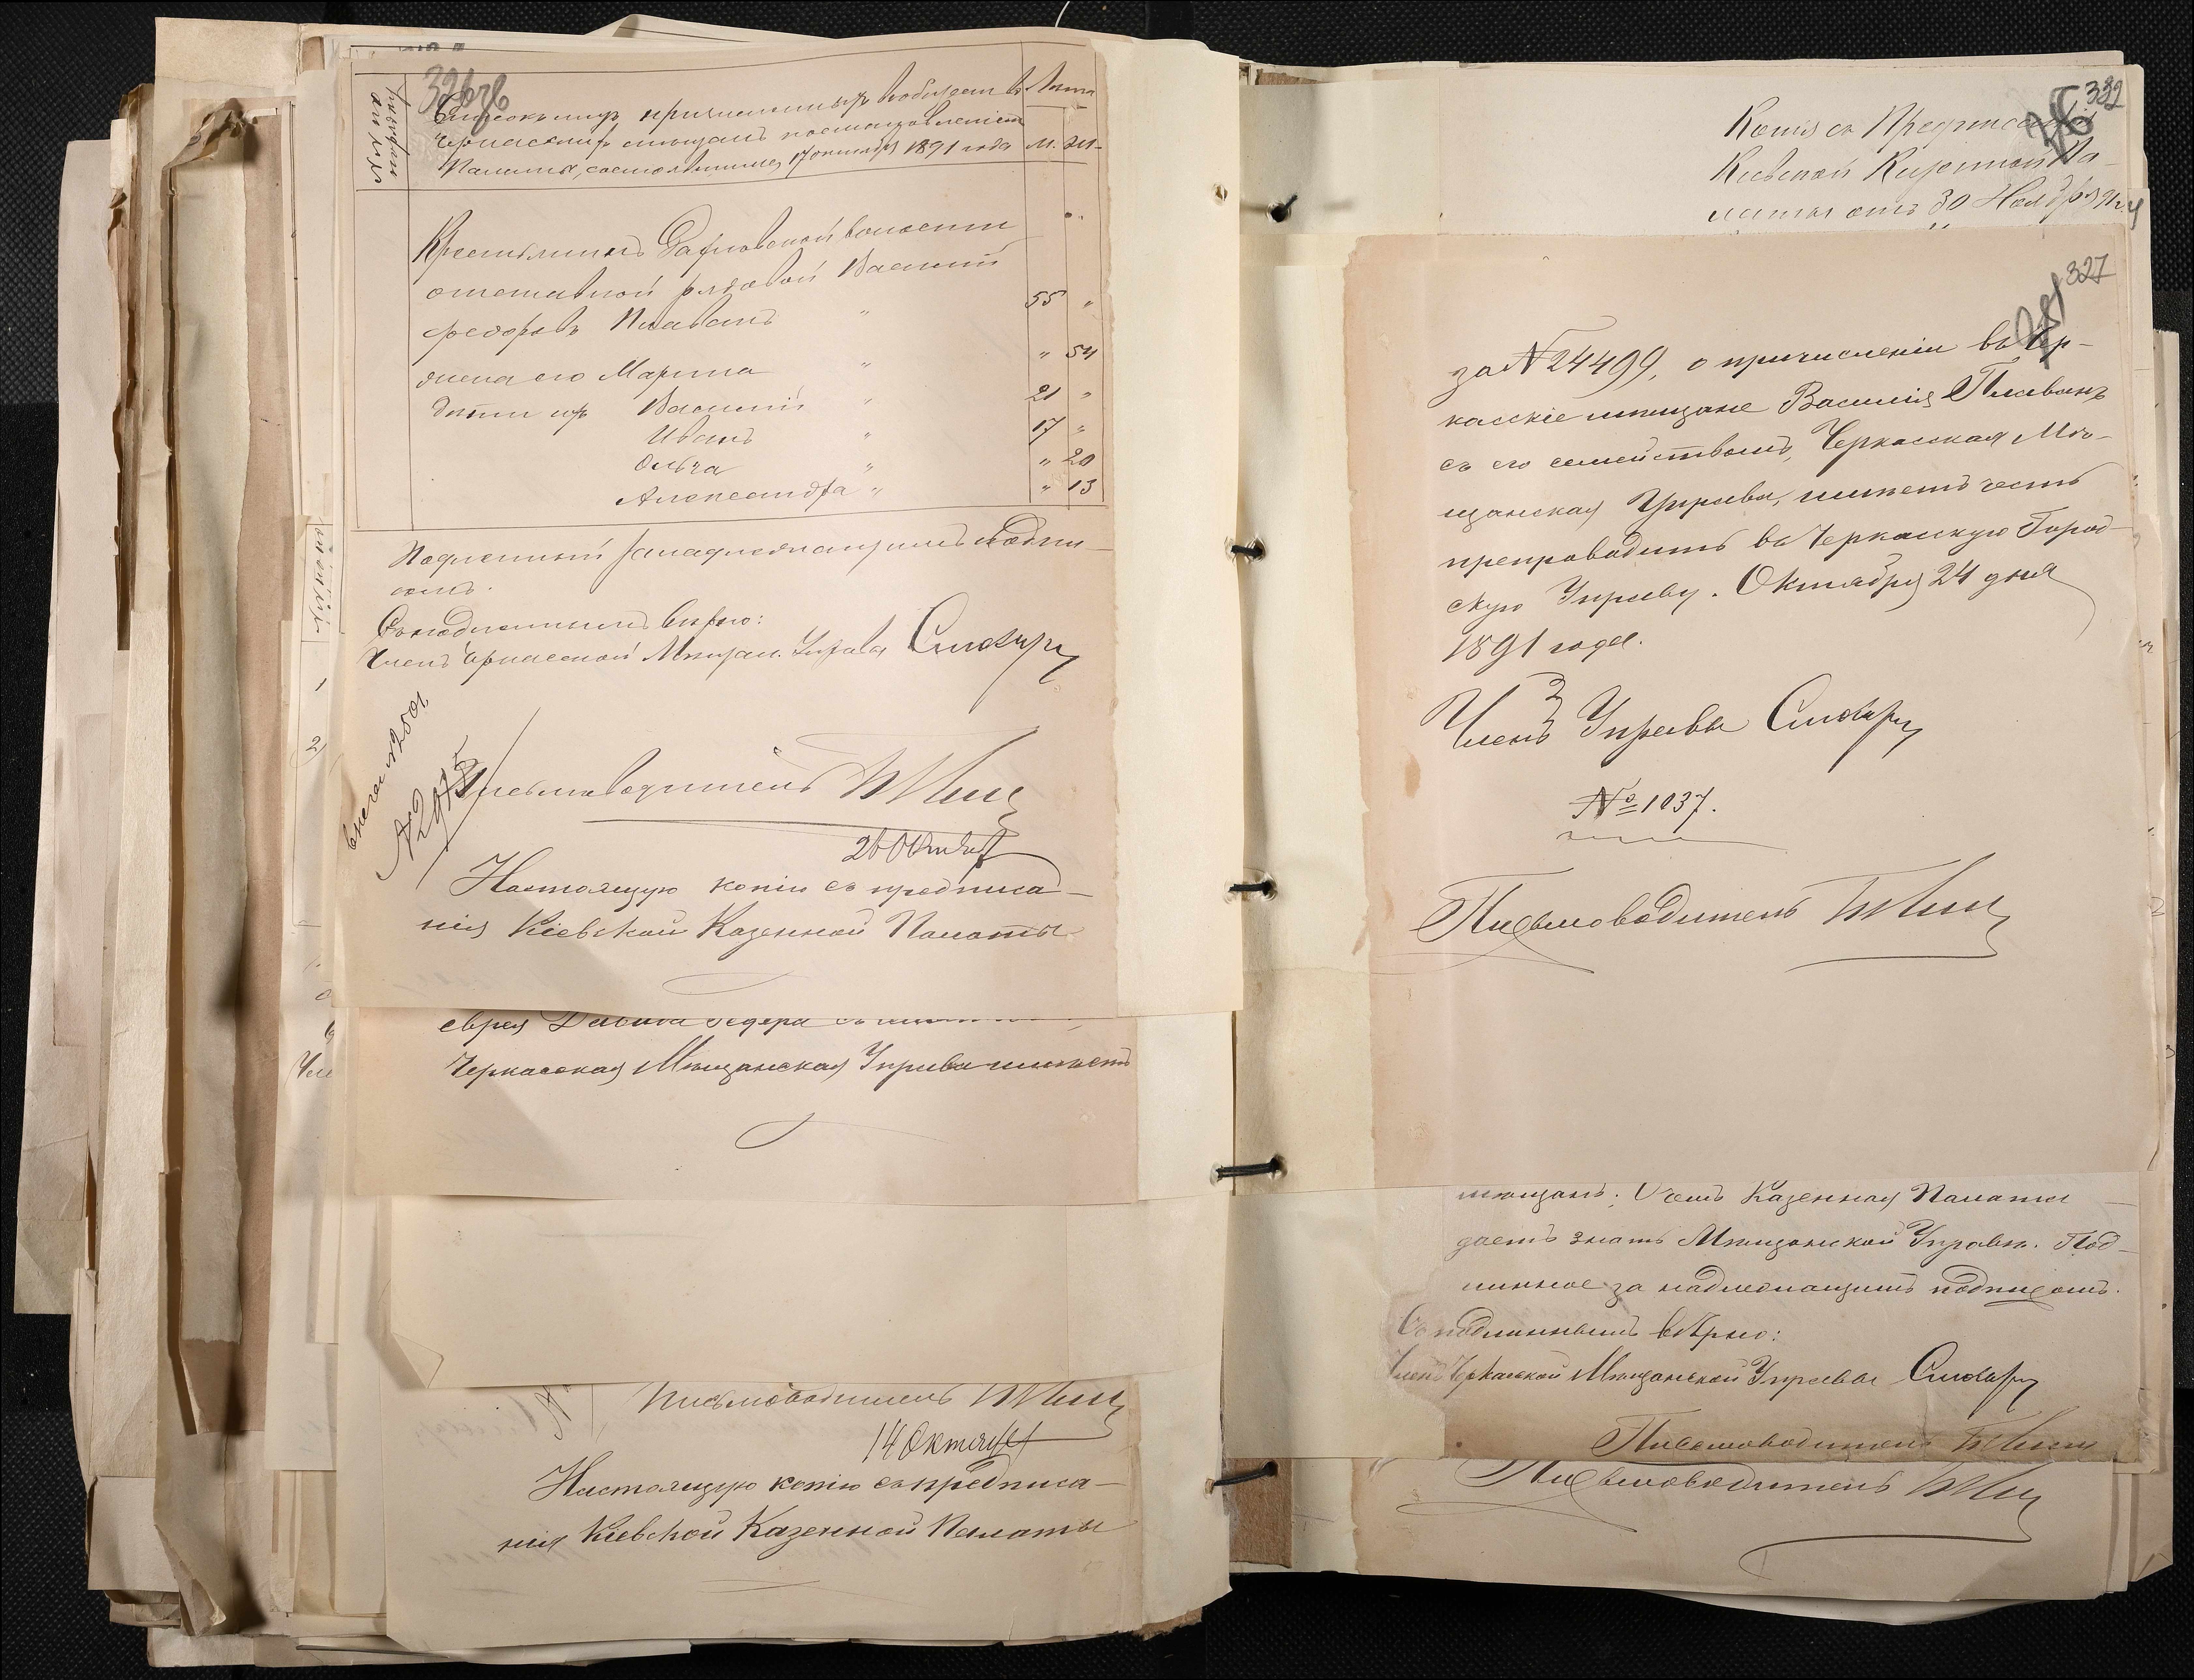 326 об
Списокъ лицъ причисленныхъ въ общество
Черкасскихъ мещанъ постановленіемъ
Палаты, состоявшимся 17 октября 1891 года
Лета
м. ж.
Крестьянинъ волости
отставной рядовой Василій
Федоровъ Плаванъ " 55 "
жена его Марина " " 54
дети ихъ Василій " 21 "
Иванъ " 17 "
Ольга " " 20
Александра " " 13
Подлинный за надлежащимъ подпи-
сомъ.
Съ подлиннымъ верно:
Членъ Черкасской Мещан. Управы
Письмоводитель
26 Октября
Настоящую копію съ предписа-
нія Кіевской Казенной Палаты
еврея Давида съ
Черкасская Мещанская Управа имеетъ
Письмоводитель
14 Октября
Настоящую копію съ предписа-
нія Кіевской Казенной Палаты
332
Копія съ Предписанія
Кіевской Казенной Па-
латы отъ 30 Ноября 91 г.
327
за № 24499, о причисленіи въ Чер-
касскіе мещане Василія Плаванъ
съ его семействомъ, Черкасская Ме-
щанская Управа, имеетъ честь
препроводить въ Черкасскую Город-
скую Управу. Октября 24 дня
1891 года.
Членъ Управы
№ 1037.
Письмоводитель
мещанъ; О чемъ Казенная Палата
даетъ знать Мещанской Управе. Под-
линное за надлежащимъ подписомъ.
Съ подлиннымъ вѣрно:
Членъ Черкасской Мещанской Управы
Письмоводитель
Письмоводитель